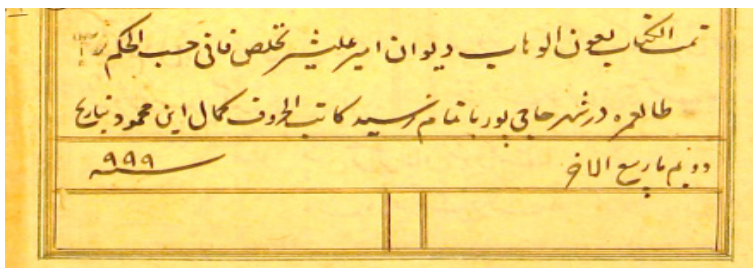 تمت الكتاب بعون الوهاب ديوان امير عليشير تخلص فانى حسب الحكم
طالعمره در شهر حاجى پور باتمام رسيد كاتب الحروف كمال ابن محمود بتاريخ
دويم ماه ربيع الاخر سنه ٩٩٩